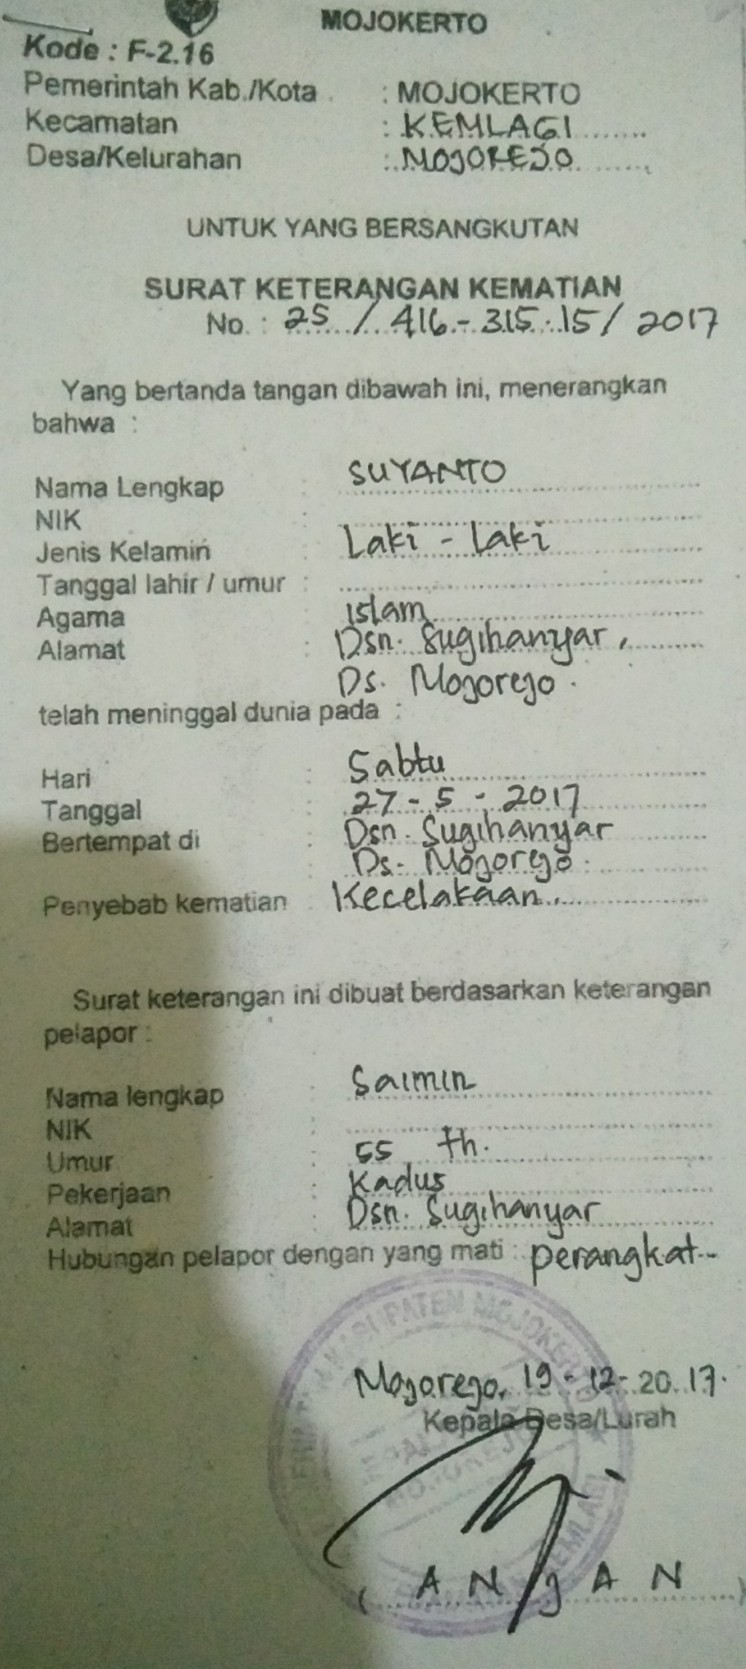 MOJOKERTO
Kode : F-2.16
Pemerintah Kab./Kota : MOJOKERTO
Kecamatan : KEMLAGI
Desa/Kelurahan : MOJOREJO
UNTUK YANG BERSANGKUTAN
SURAT KETERANGAN KEMATIAN
No. : 25 / 416 - 315.15 / 2017
Yang bertanda tangan dibawah ini, menerangkan
bahwa :
Nama Lengkap : SUYANTO
NIK :
Jenis Kelamin : Laki - laki
Tanggal lahir / umur :
Agama : islam
Alamat : Dsn. Sugihanyar,
Ds. Mojorejo.
telah meninggal dunia pada :
Hari : Sabtu
Tanggal : 27 - 5 - 2017
Bertempat di : Dsn. Sugihanyar
Ds. Mojorejo.
Penyebab kematian : Kecelakaan.
Surat keterangan ini dibuat berdasarkan keterangan
pelapor :
Nama lengkap : Saimin
NIK :
Umur : 55 th.
Pekerjaan : Kadus
Alamat : Dsn. Sugihanyar
Hubungan pelapor dengan yang mati : perangkat
Mojorejo, 19 - 12 - 2017.
Kepala Desa/Lurah
( ANJAN )